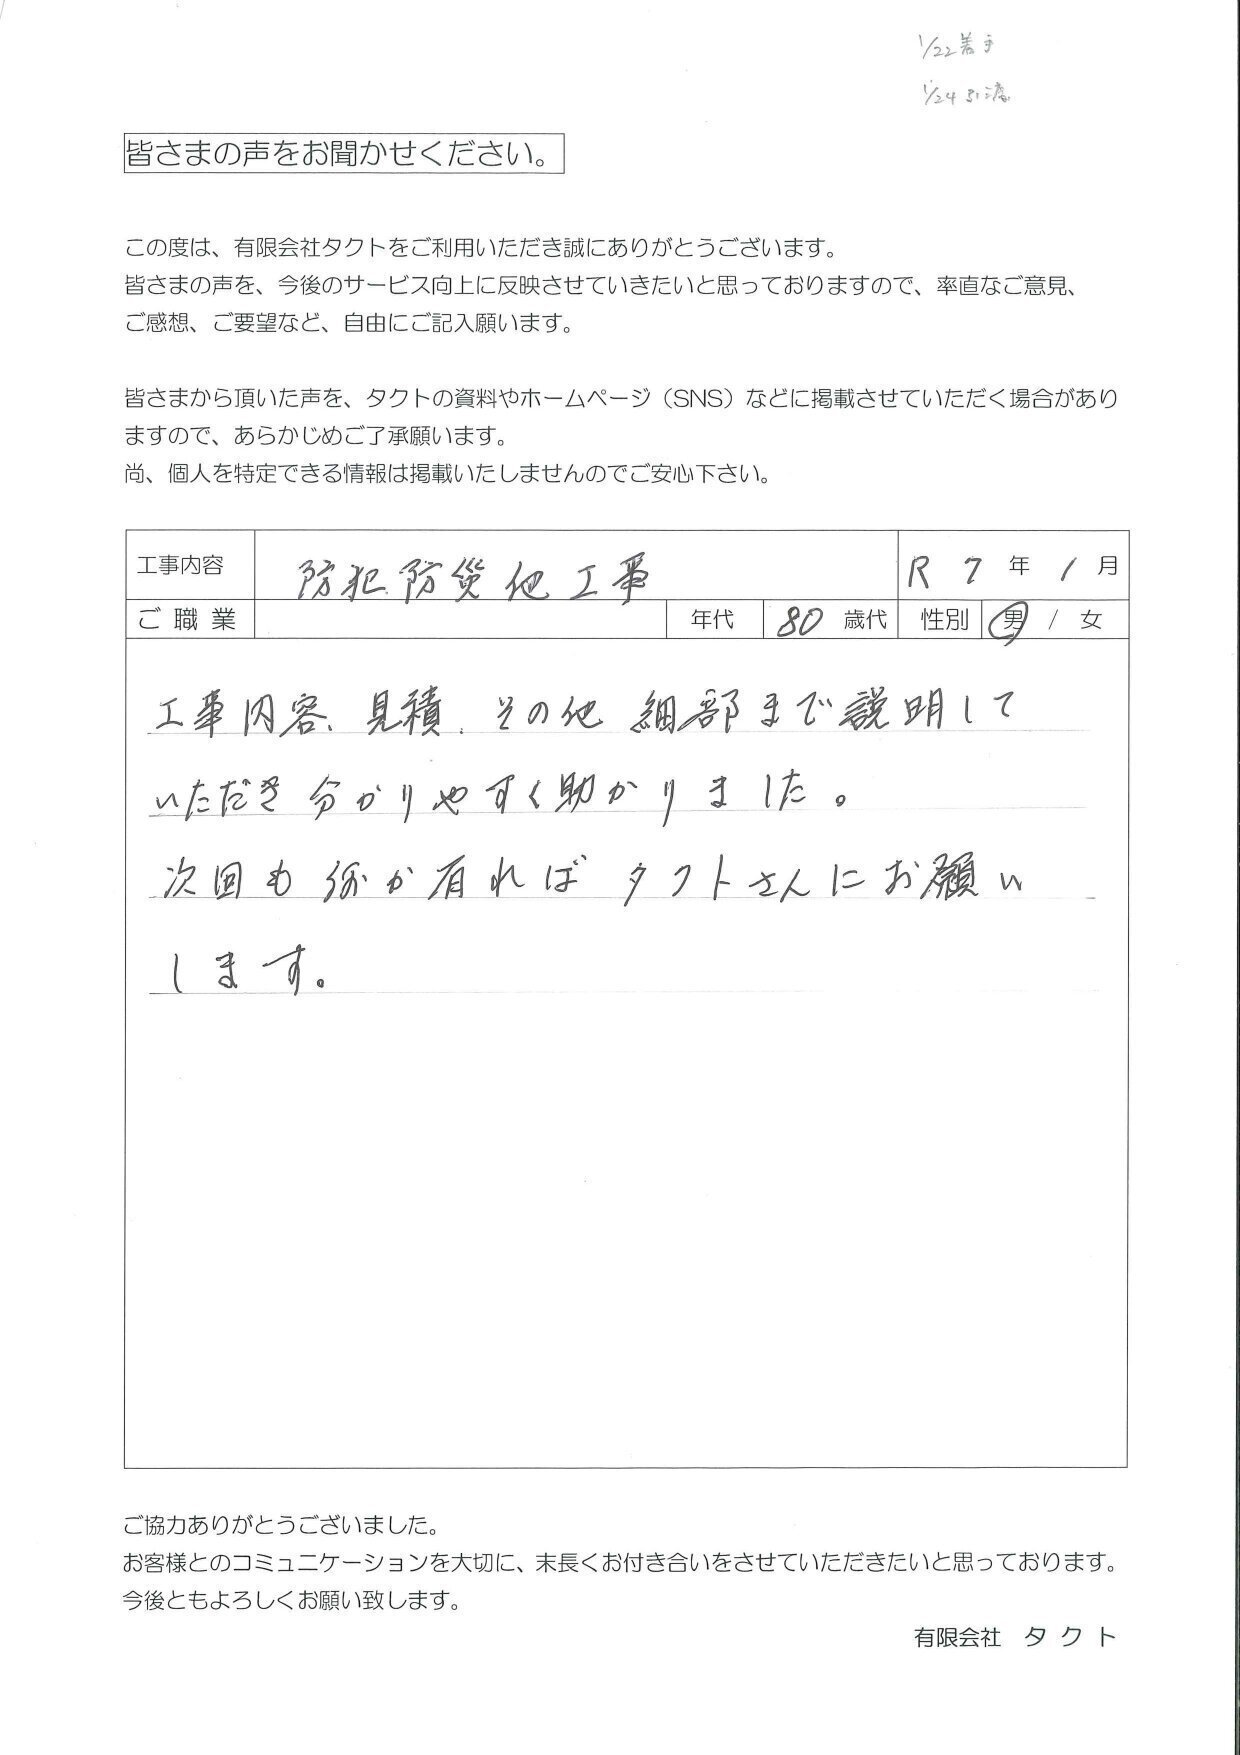 1/22着手
1/24引渡
皆さまの声をお聞かせください。
この度は、有限会社タクトをご利用いただき誠にありがとうございます。
皆さまの声を、今後のサービス向上に反映させていきたいと思っておりますので、率直なご意見、
ご感想、ご要望など、自由にご記入願います。
皆さまから頂いた声を、タクトの資料やホームページ（SNS）などに掲載させていただく場合があり
ますので、あらかじめご了承願います。
尚、個人を特定できる情報は掲載いたしませんのでご安心下さい。
工事内容 防犯防災他工事 R 7 年 1 月
ご職業 年代 80 歳代 性別 男 / 女
工事内容、見積、その他 細部まで説明して
いただき分かりやすく助かりました。
次回も何か有ればタクトさんにお願い
します。
ご協力ありがとうございました。
お客様とのコミュニケーションを大切に、末長くお付き合いをさせていただきたいと思っております。
今後ともよろしくお願い致します。
有限会社 タクト